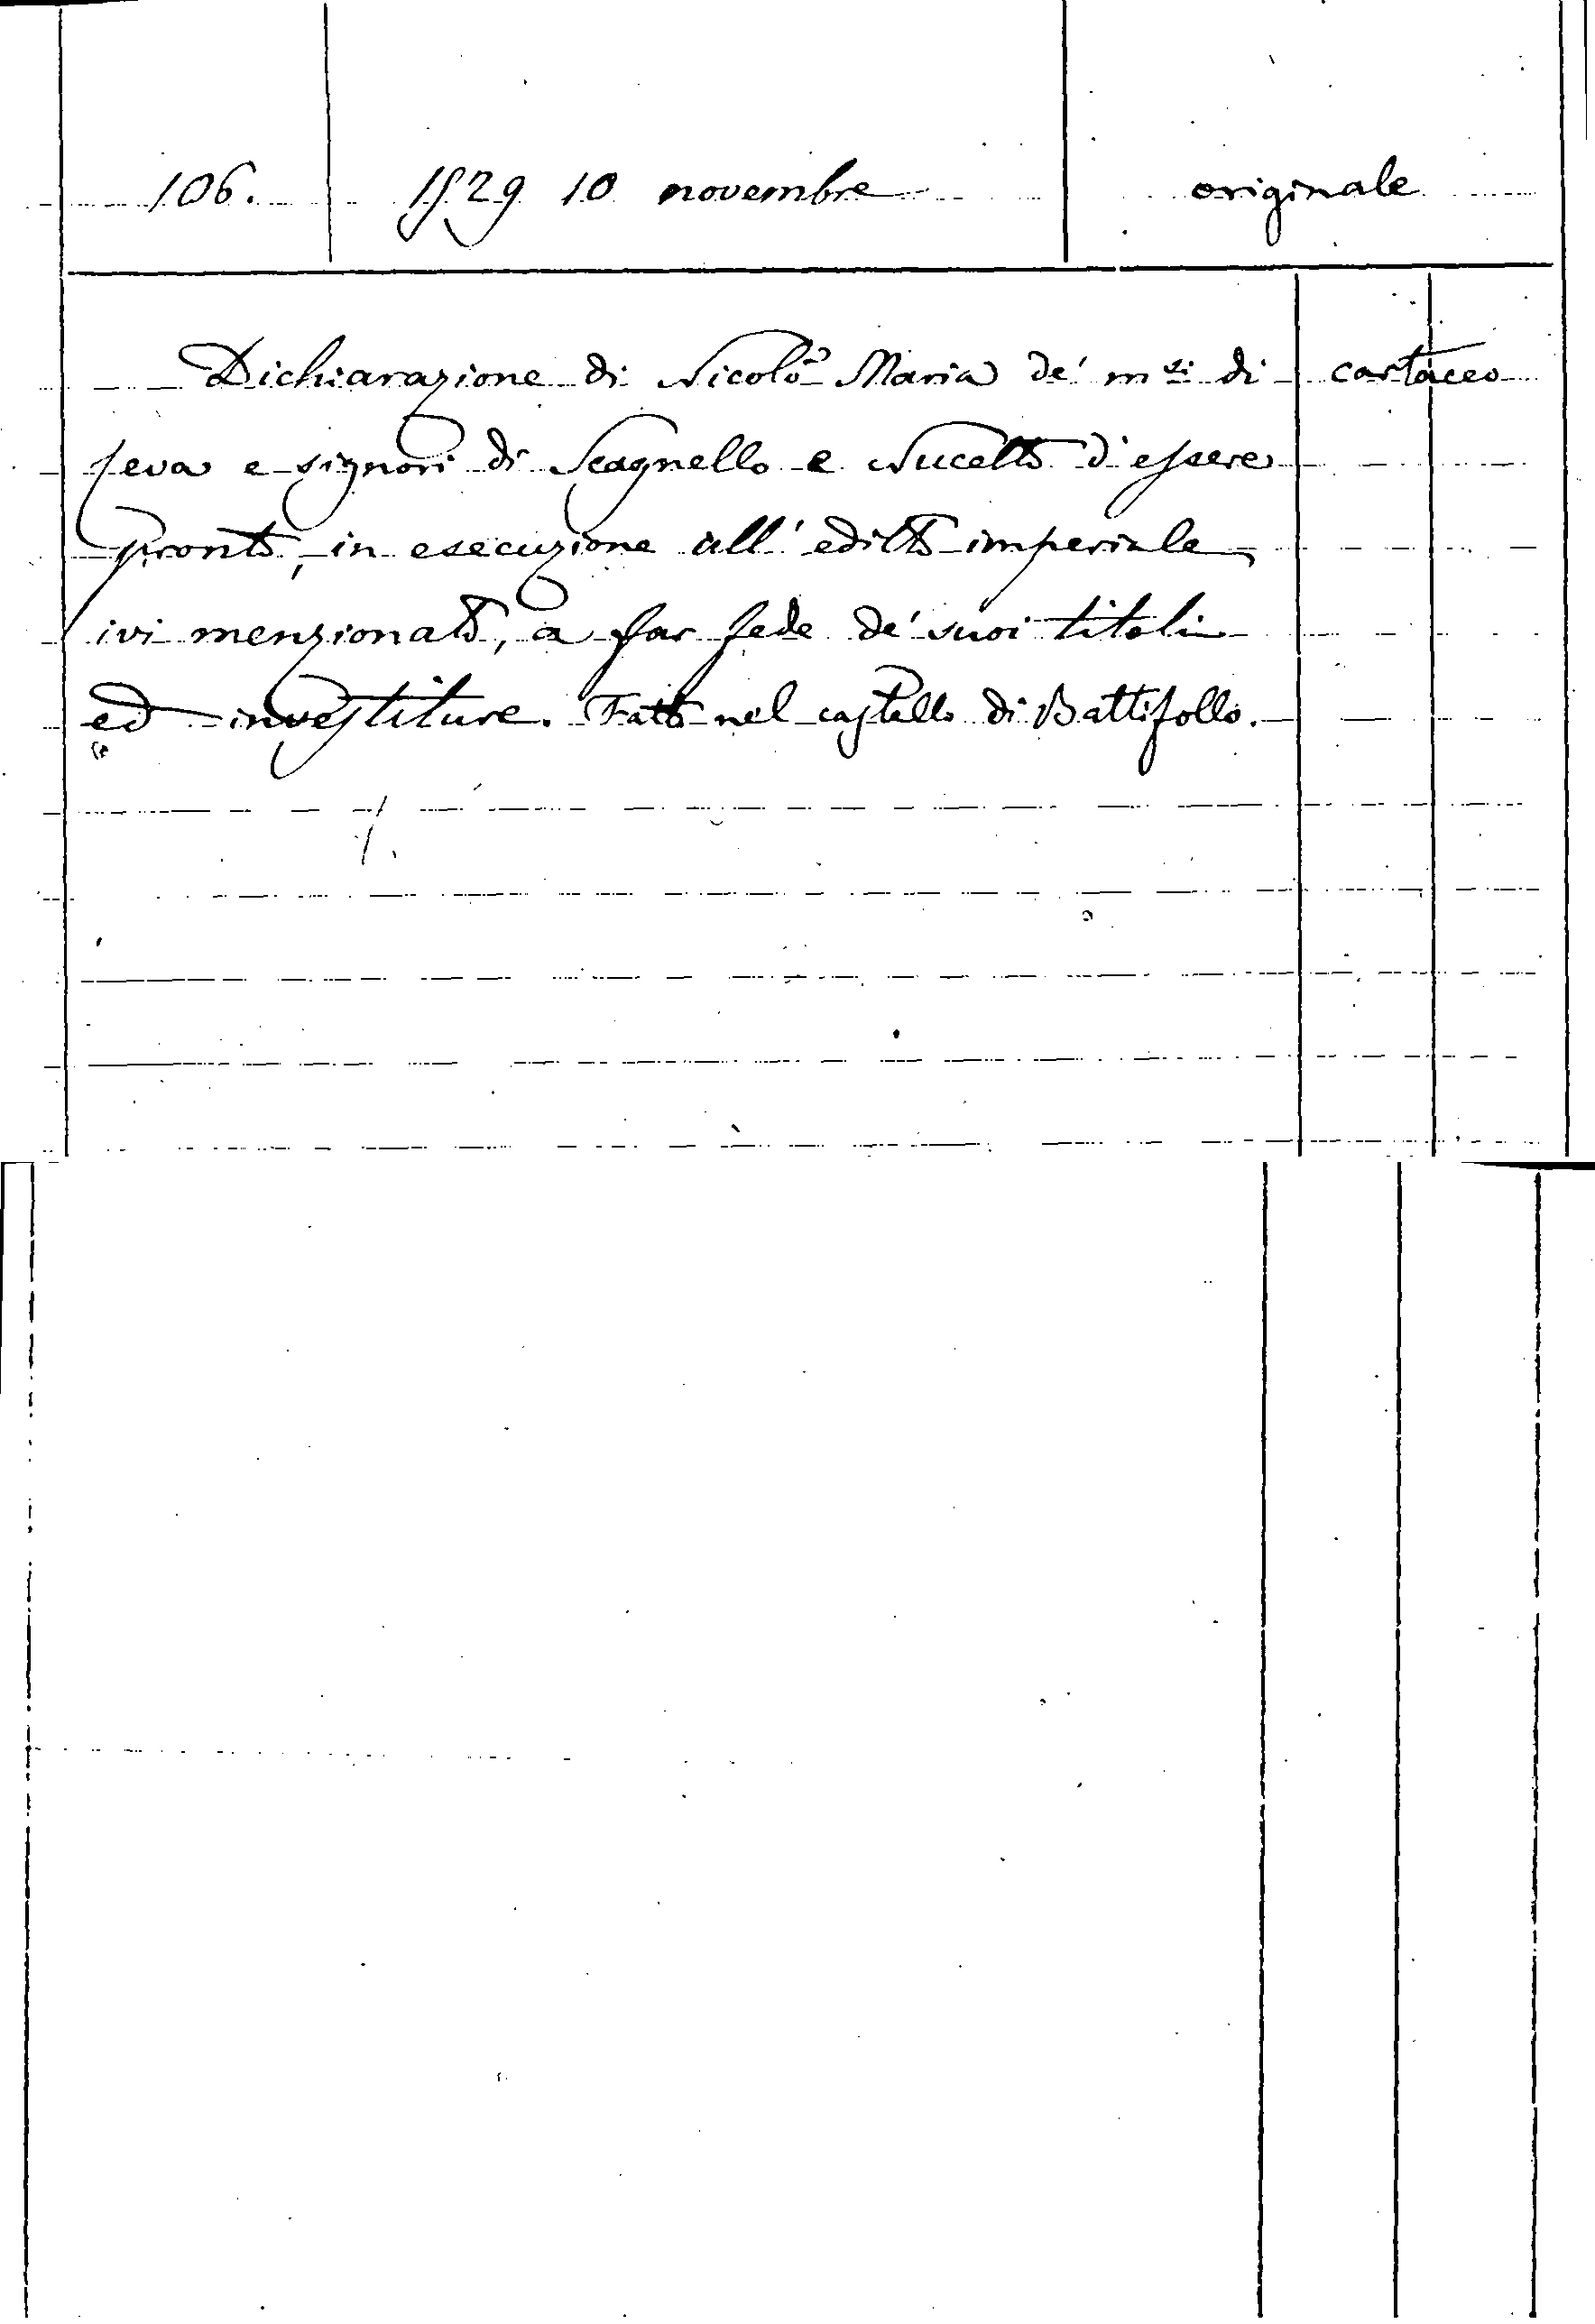 106. 1529 10 novembre originale
Dichiarazione di Nicolò Maria de' m.si di cartaceo
Ceva e signori di Scagnello e Nucetto d'essere
pronto, in esecuzione all'editto imperiale
ivi menzionato, a far fede de' suoi titoli
ed investiture. Fatto nel castello di Battifollo.